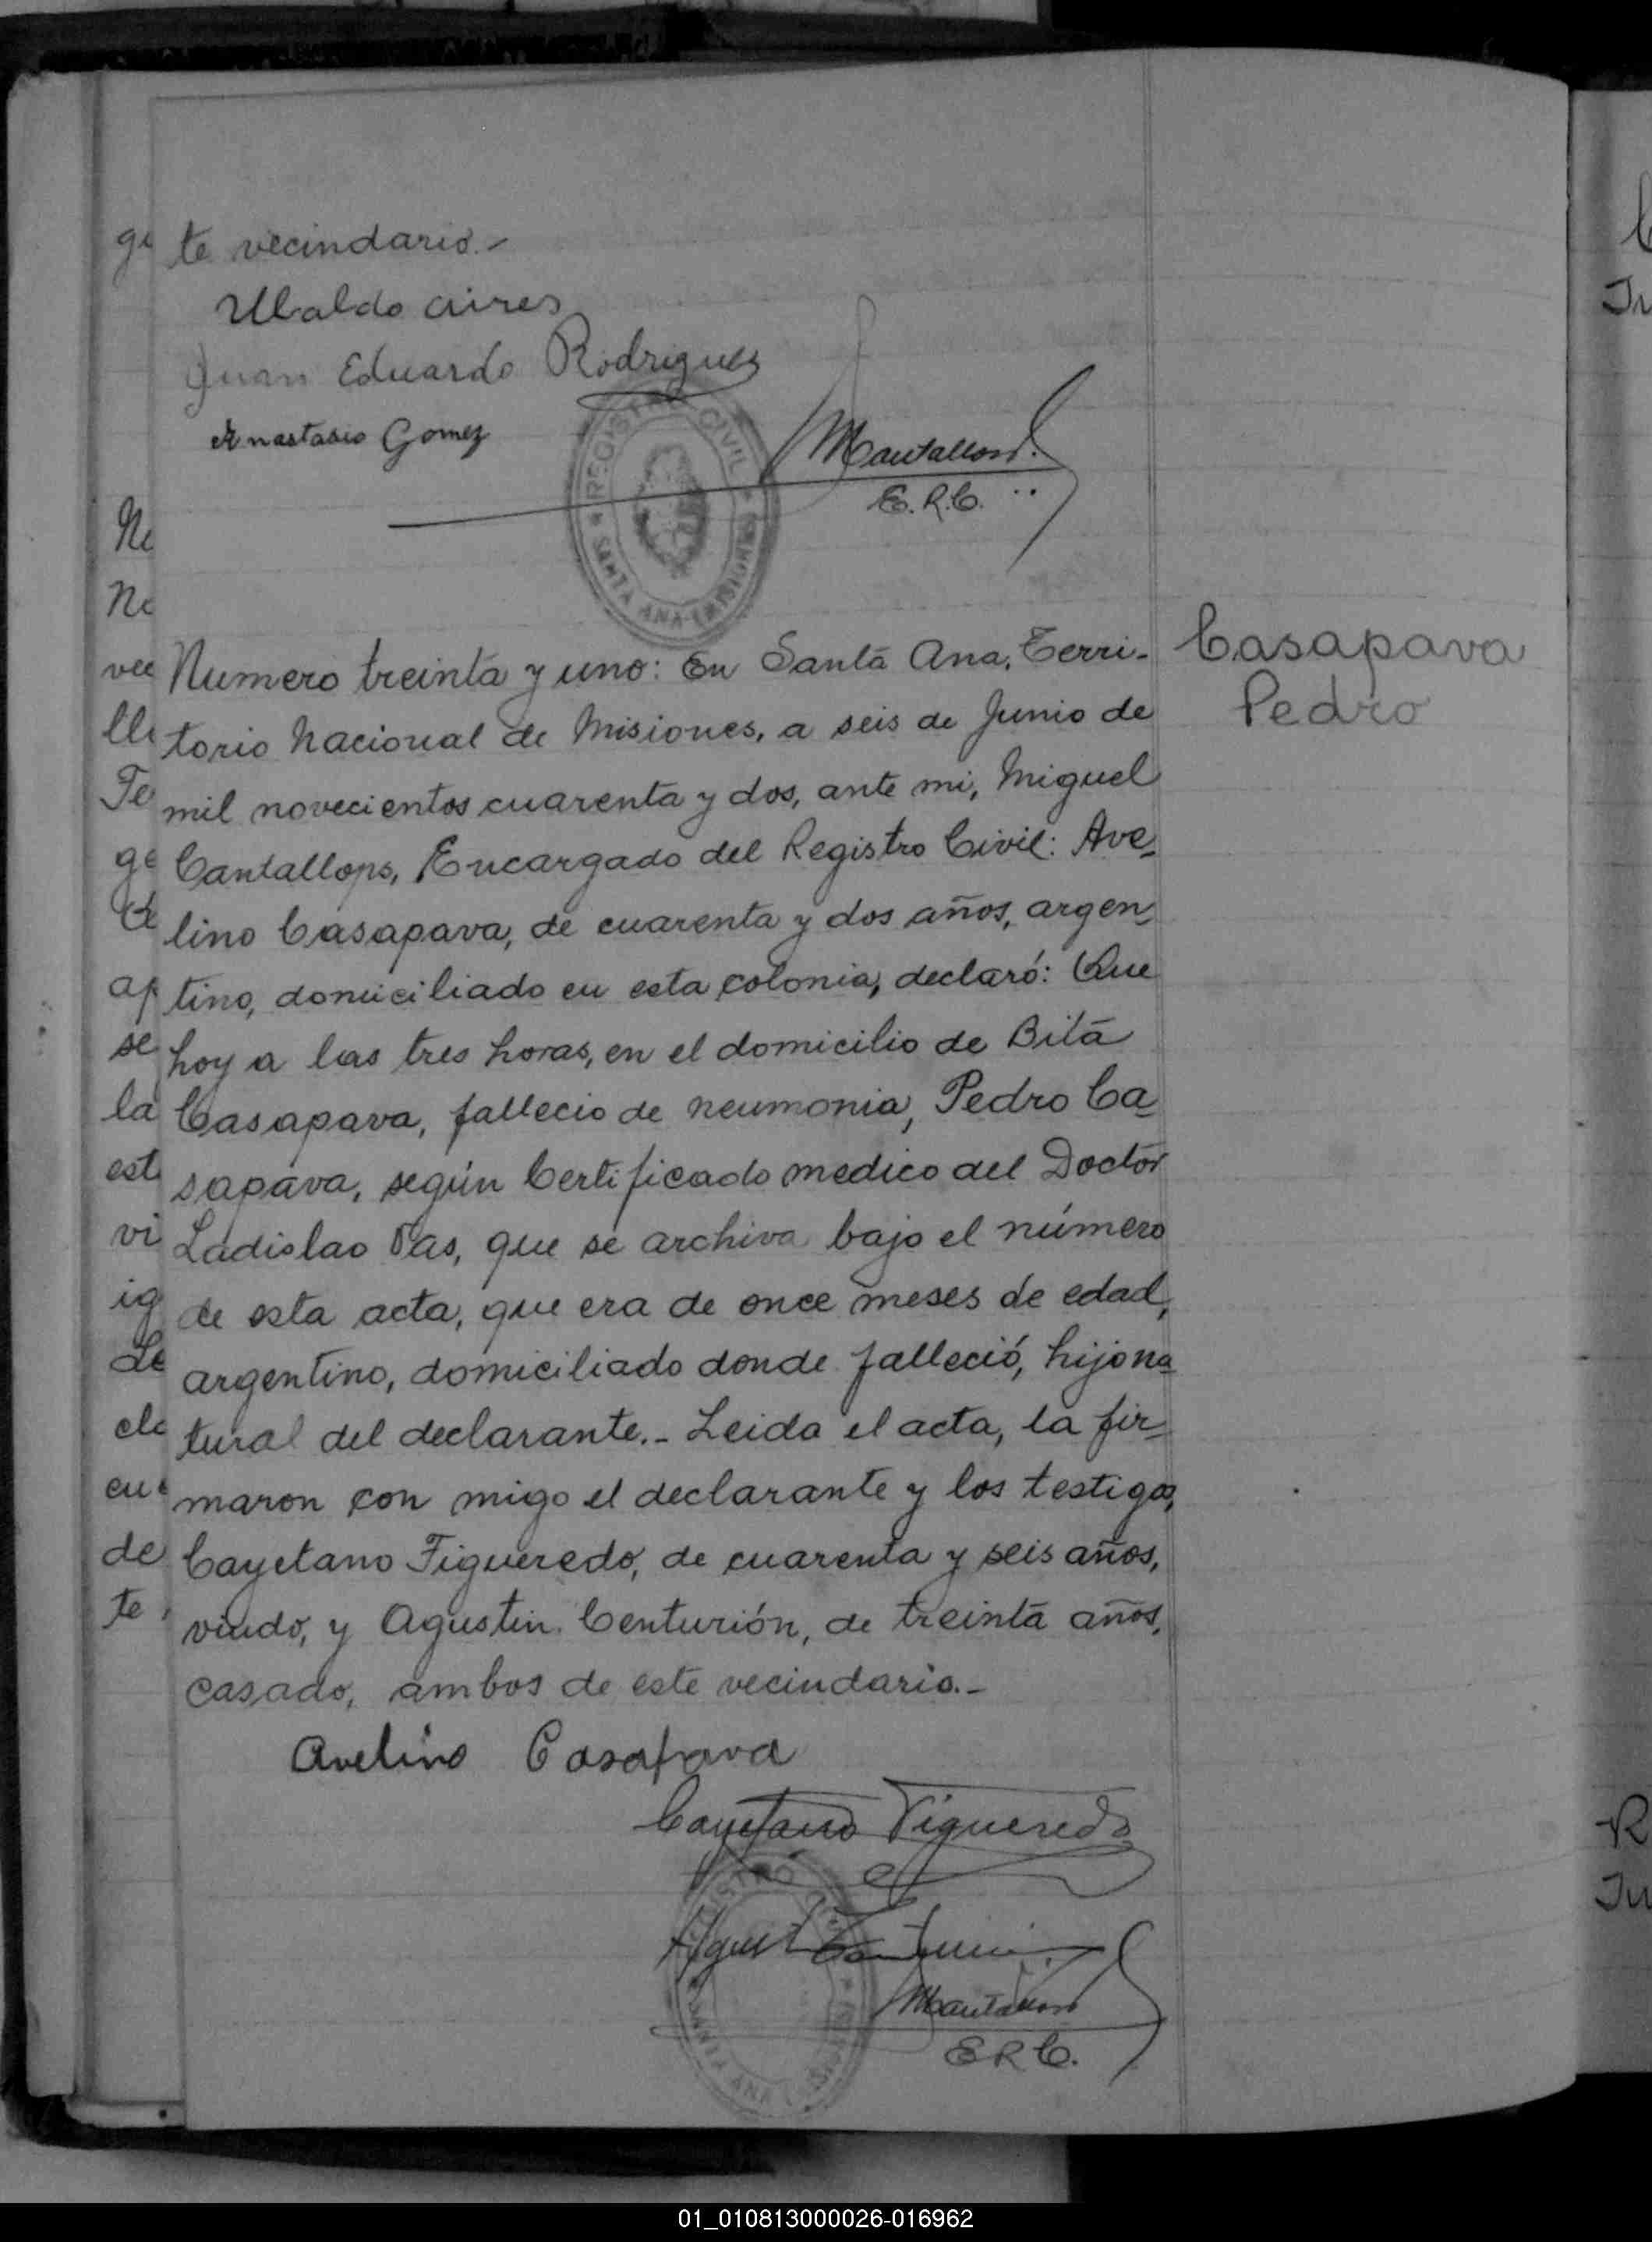 te vecindario.-
Ubaldo Aires
Juan Eduardo Rodriguez
Anastasio Gomez
REGISTRO CIVIL
SANTA ANA (MISIONES)
E.R.C.
Casapava
Pedro
Numero treinta y uno: En Santa Ana, Terri-
torio Nacional de Misiones, a seis de Junio de
mil novecientos cuarenta y dos, ante mi, Miguel
Cantallops, Encargado del Registro Civil: Ave-
lino Casapava, de cuarenta y dos años, argen-
tino, domiciliado en esta colonia, declaró: Que
hoy a las tres horas, en el domicilio de Bita
Casapava, fallecio de neumonia, Pedro Ca-
sapava, según Certificado medico del Doctor
Ladislao Vas, que se archiva bajo el número
de esta acta, que era de once meses de edad,
argentino, domiciliado donde falleció, hijo na-
tural del declarante.- Leida el acta, la fir-
maron con migo el declarante y los testigos,
Cayetano Figueredo, de cuarenta y seis años,
viudo, y Agustin Centurión, de treinta años,
casado, ambos de este vecindario.-
Avelino Casapava
Cayetano Figueredo
E R C.
01_010813000026-016962